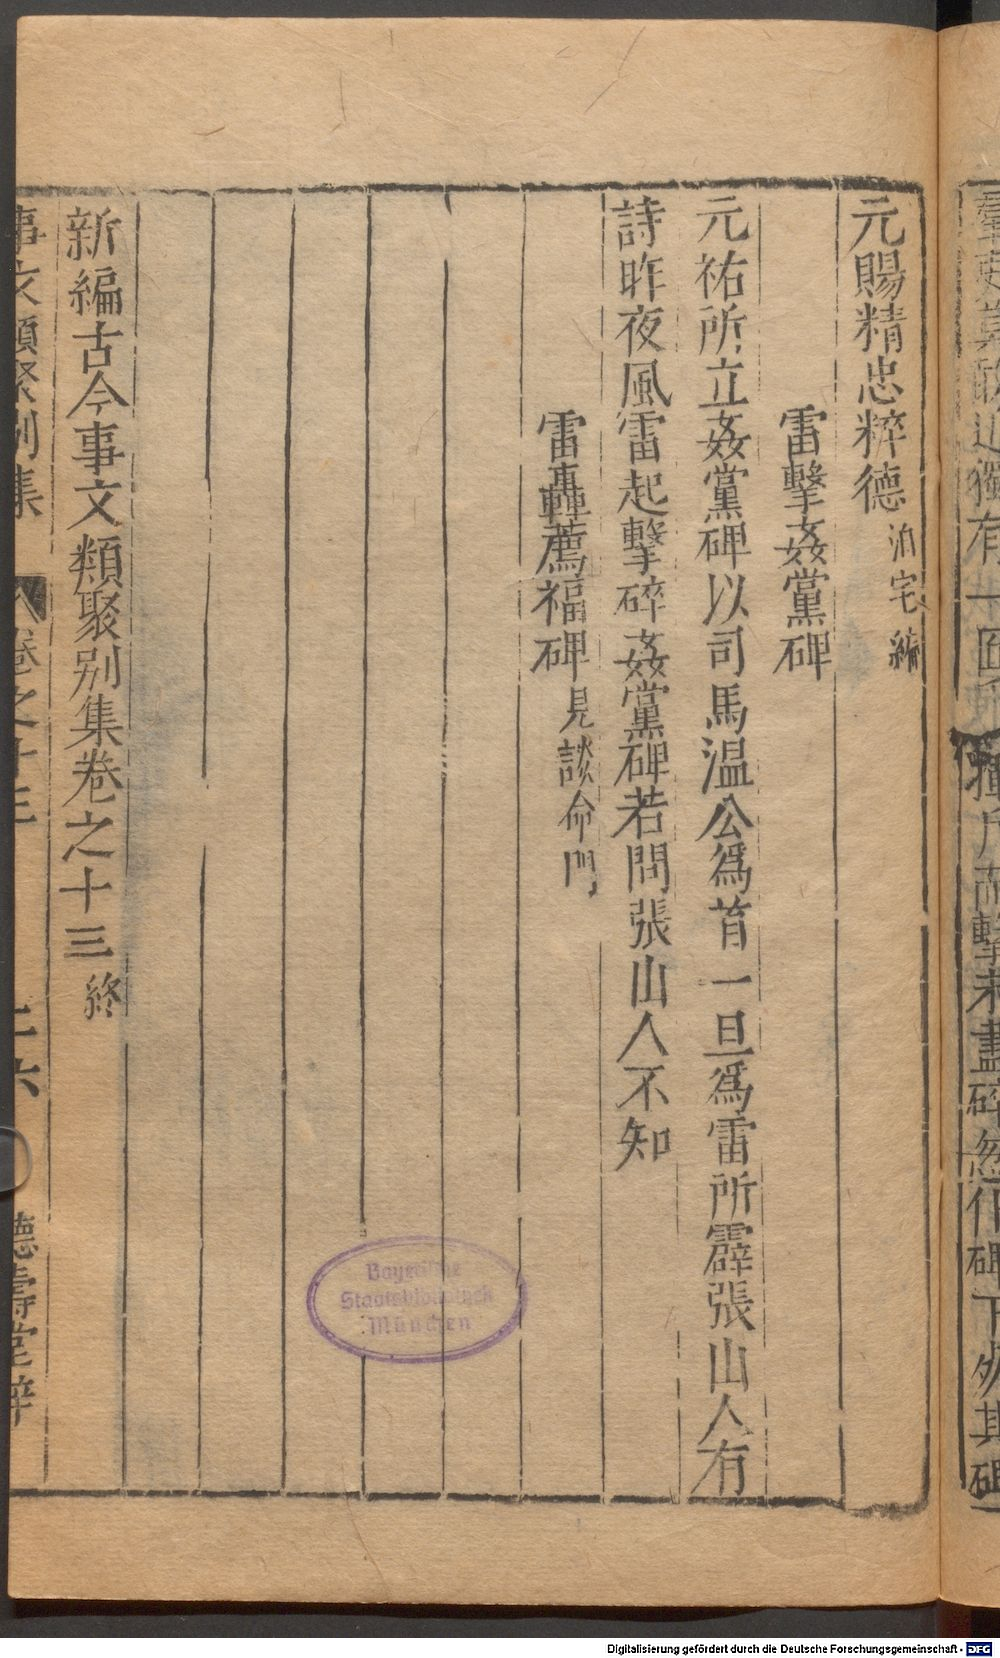 元賜精忠粹德泊宅編
雷擊姦黨碑
元祐所立姦黨碑以司馬温公爲首一旦爲雷所霹張山人有
詩昨夜風雷起擊碎姦黨碑若問張山人不知
雷轟薦福碑見談命門
新編古今事文類聚别集卷之十三終
事文類聚别集 卷之十三 二六 德壽堂梓
Bayerische
Staatsbibliothek
München
Digitalisierung gefördert durch die Deutsche Forschungsgemeinschaft - DFG